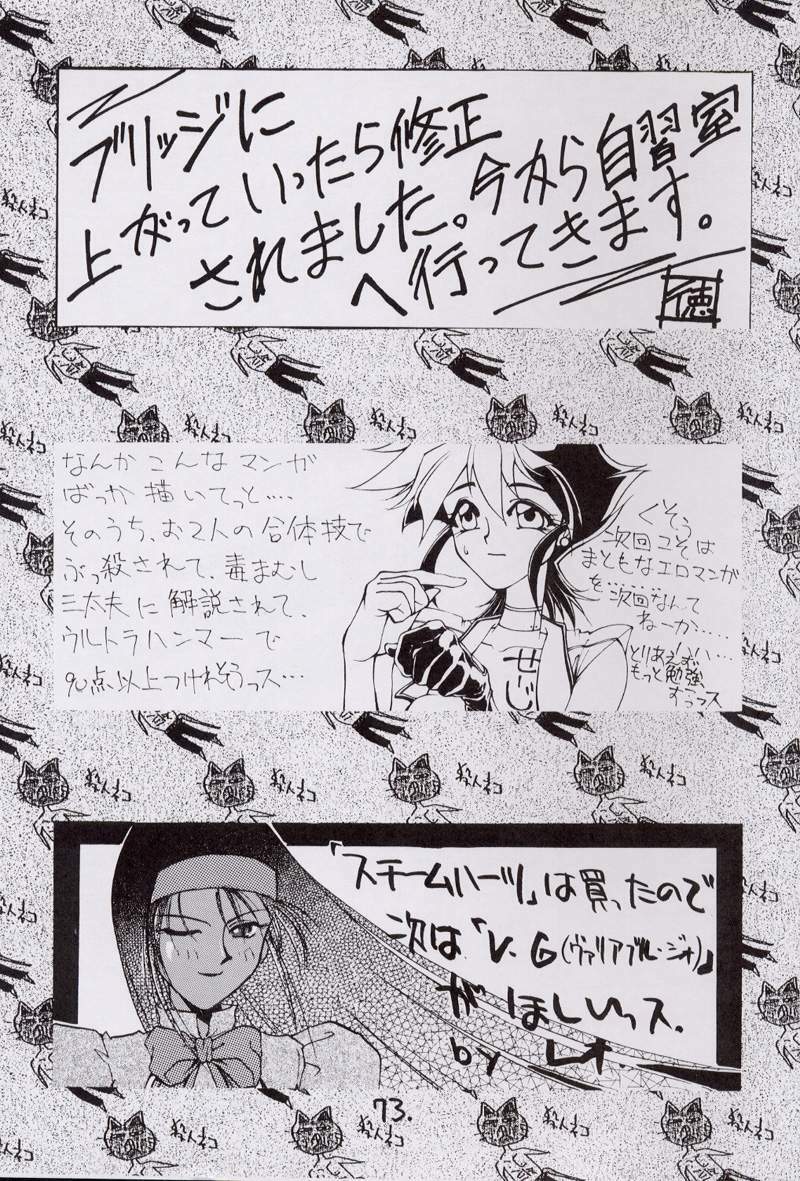 ブリッジに
上がっていったら修正
されました。今から自習室
へ行ってきます。
徳
なんかこんなマンガ
ばっか描いてっと‥‥
そのうち、お2人の合体技で
ぶっ殺されて、毒まむし
三太夫に解説されて、
ウルトラハンマーで
90点以上つけれそうっス…
くそう
次回こそは
まともなエロマンガ
を……
次回なんて
ねーか‥‥
とりあえず
もっと勉強
せーじ
「スチームハーツ」は買ったので
次は「V.G(ヴァリアブル・ジオ)」
がほしいっス.
by レオ.
殺人ネコ
73.